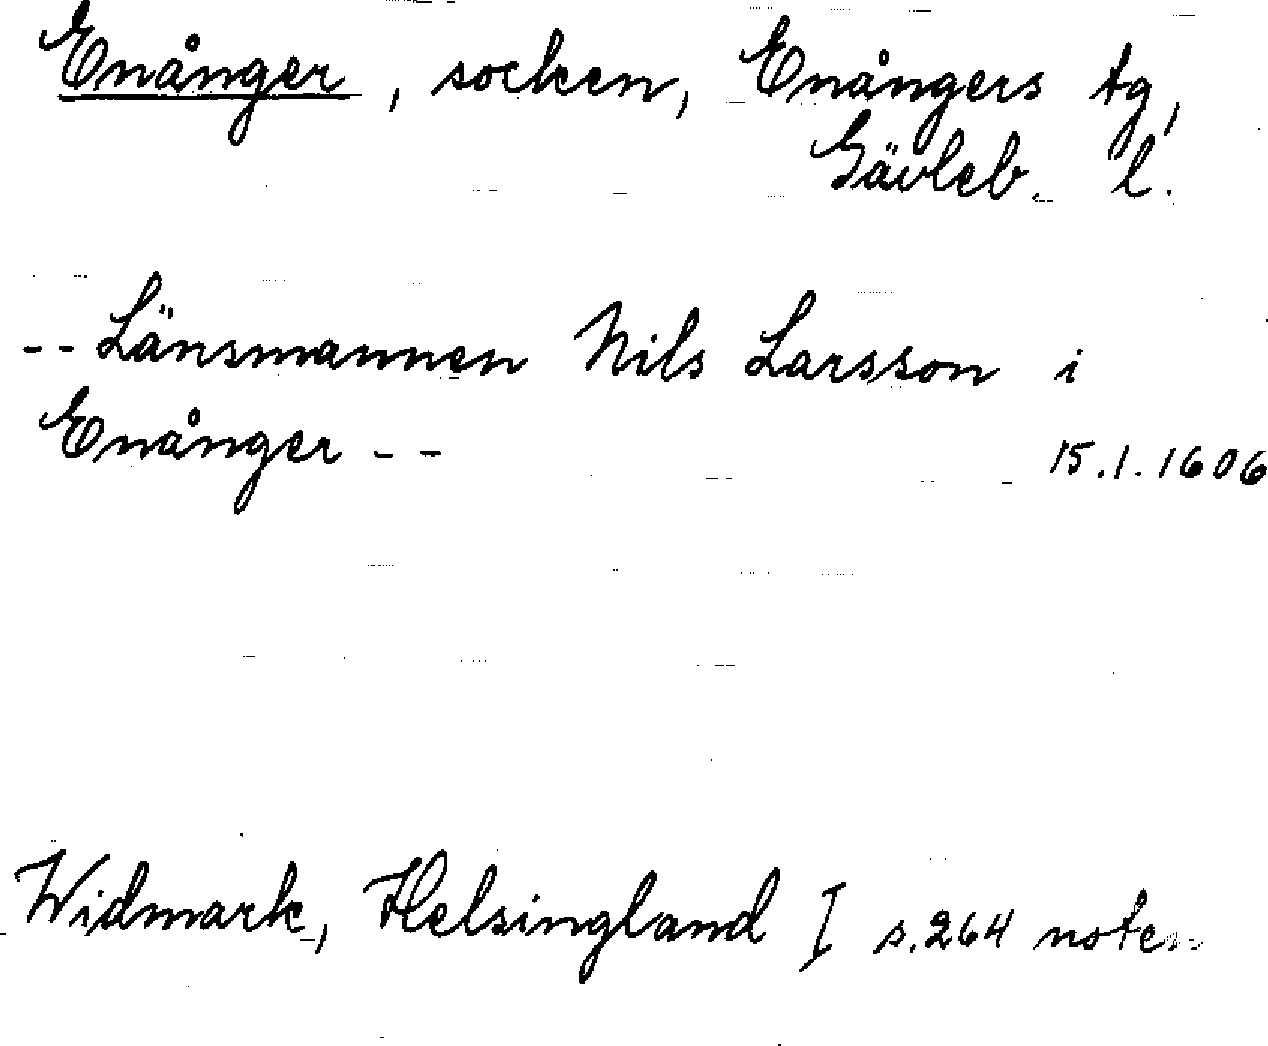 Enånger, socken, Enångers tg,
Gävleb. l.
-- Länsmannen Nils Larsson i
Enånger -- 15.1.1606
Widmark, Helsingland I s. 264 noten